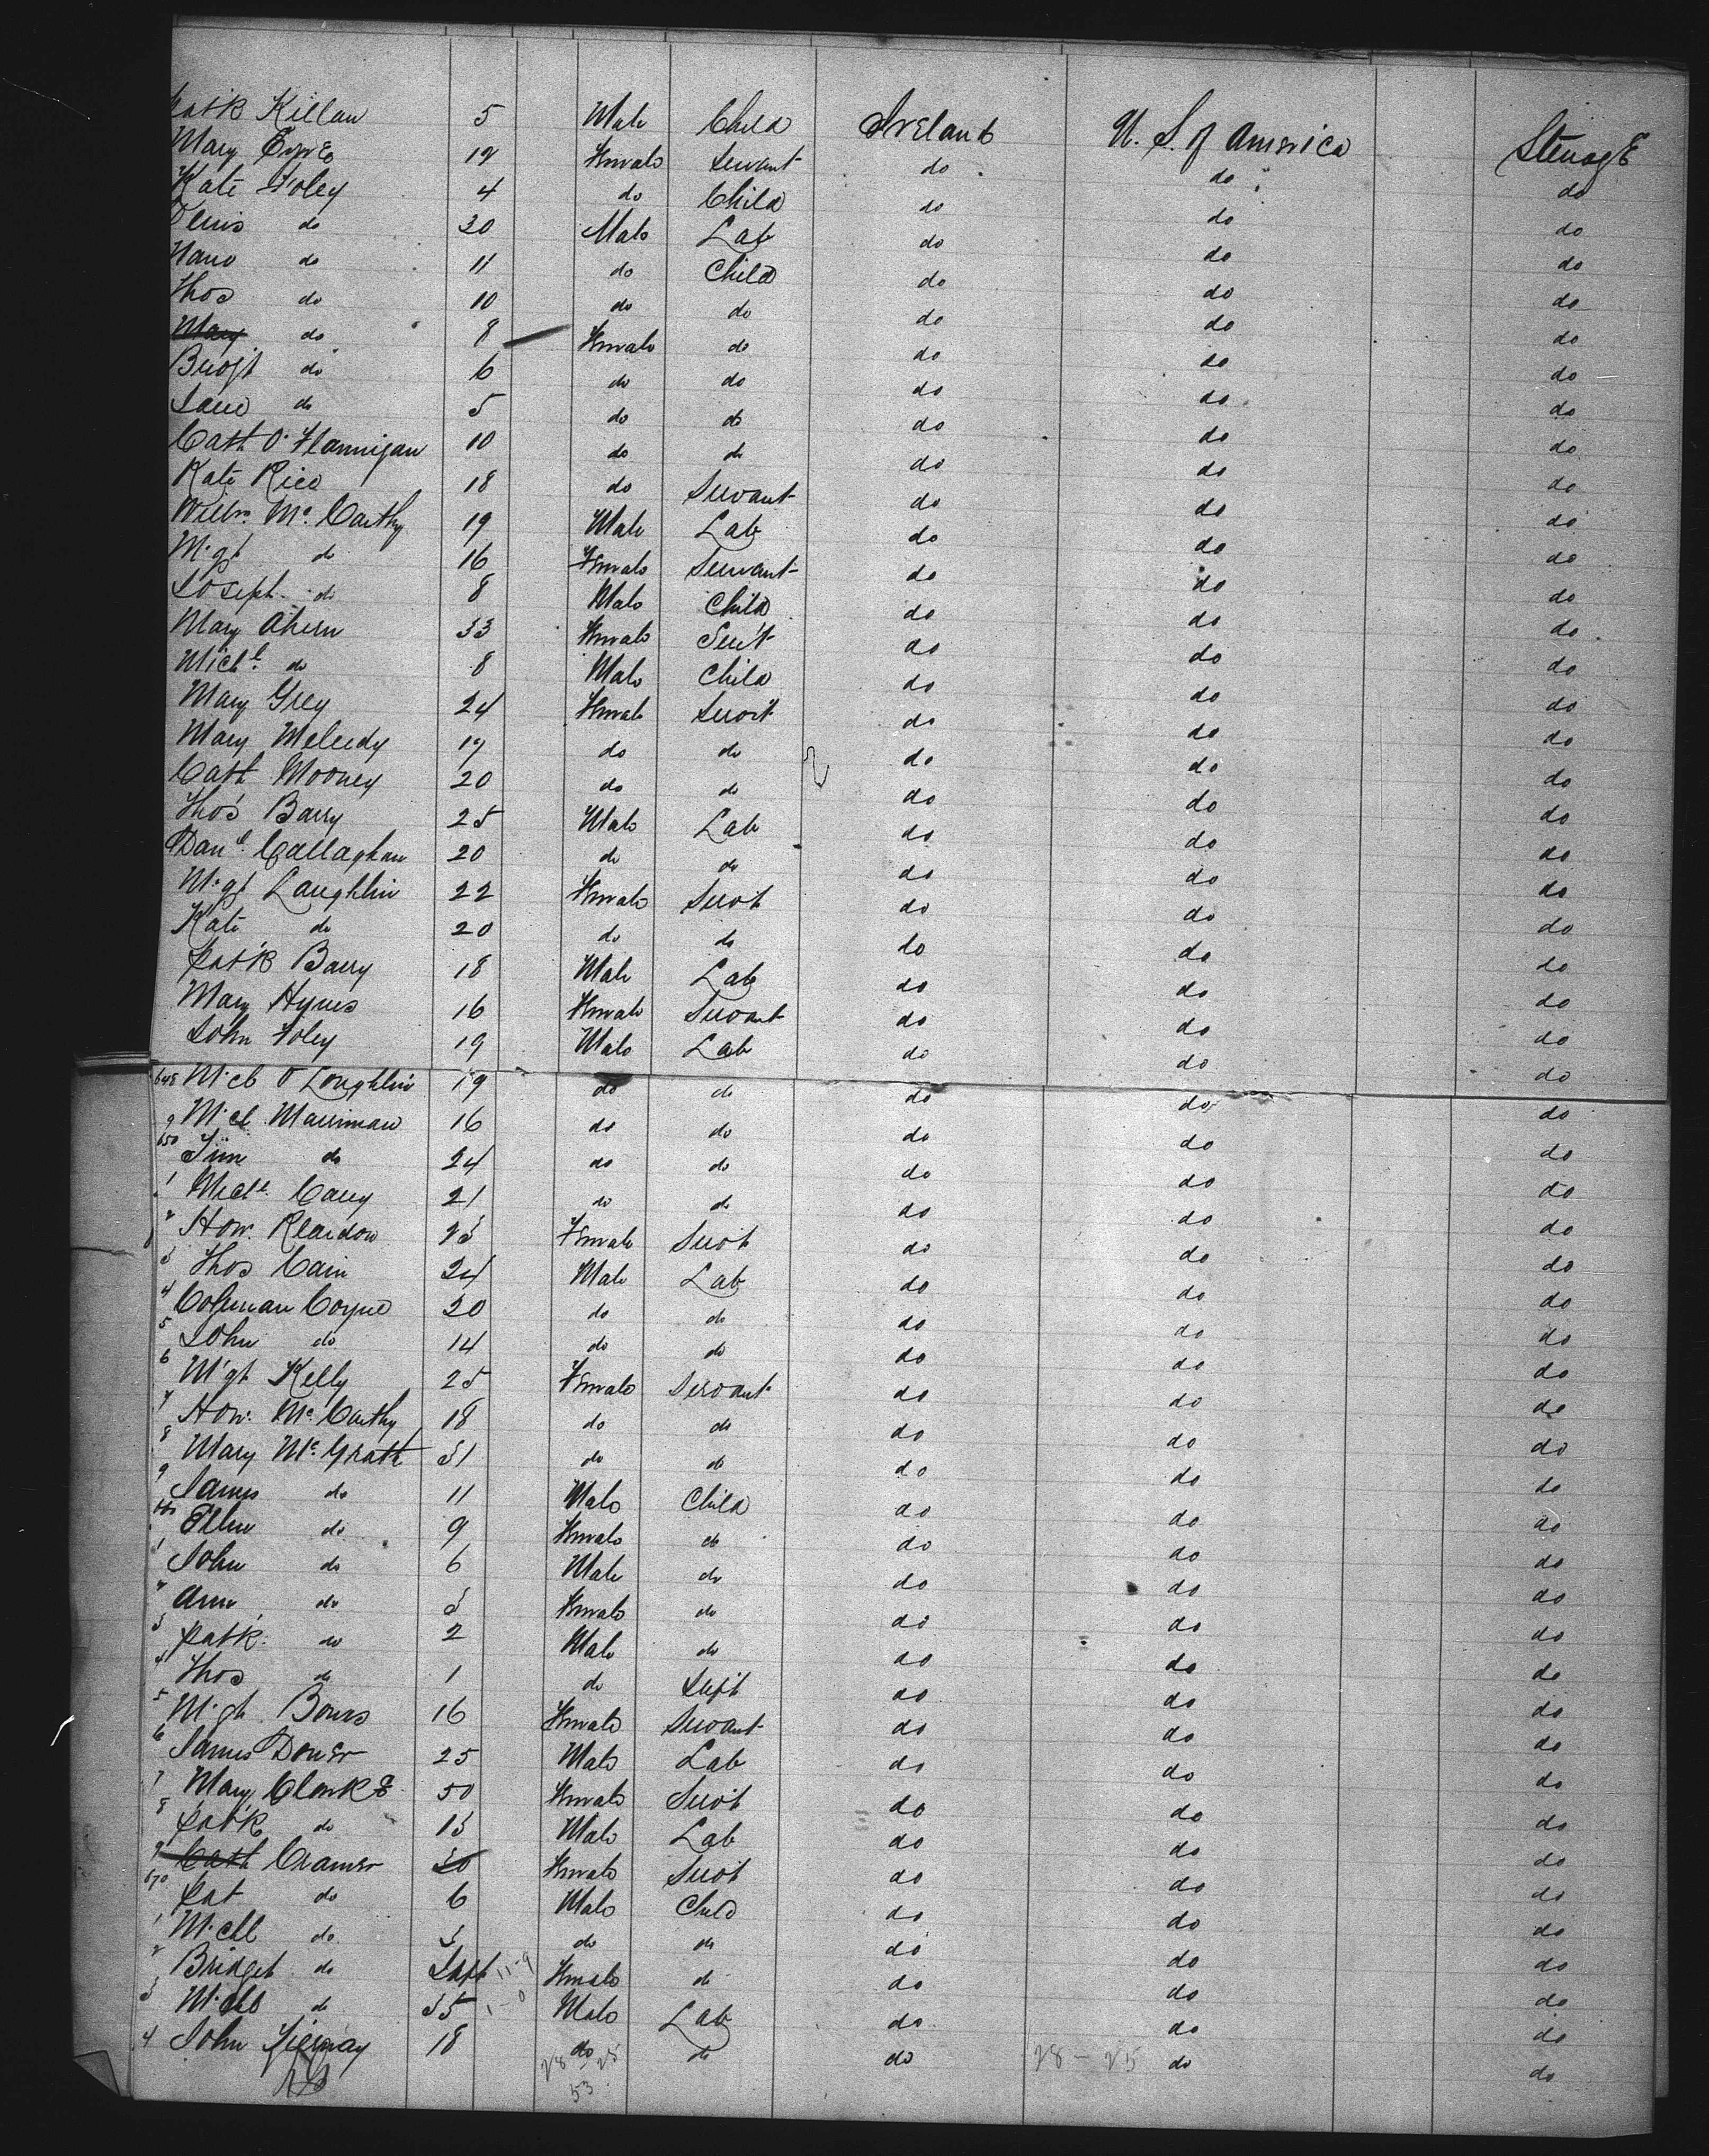 Patk Killan 5 Male Child Ireland U. S. of America Steerage
Mary 19 Female Servant do do do
Kate Foley 4 do Child do do do
Denis do 30 Male Lab do do do
do 11 do Child do do do
Thos do 10 do do do do do
Mary do 8 Female do do do do
Bridgt do 6 do do do do do
do 5 do do do do do
Cath O'Flannigan 10 do do do do do
Kate Rice 18 do Servant do do do
Willm. Mc. Carthy 19 Male Lab do do do
Mgt do 16 Female Servant do do do
Joseph do 8 Male Child do do do
Mary Ahern 33 Female Servt do do do
Michl. do 8 Male Child do do do
Mary Grey 24 Female Servt do do do
Mary Meleedy 19 do do do do do
Cath Mooney 20 do do do do do
Thos Barry 25 Male Lab do do do
Danl. Callaghan 20 do do do do do
Mgt Laughlin 22 Female Servt do do do
Kate do 20 do do do do do
Patk Barry 18 Male Lab do do do
Mary Hynes 16 Female Servant do do do
John Foley 19 Male Lab do do do
648 Mich O Loughlin 19 do do do do do
9 Mich Marriman 16 do do do do do
650 Jim do 24 do do do do do
1 Michl. Carey 21 do do do do do
2 Hon. Reardon 23 Female Servt do do do
3 Thos Cain 24 Male Lab do do do
4 Coleman Coyne 20 do do do do do
5 John do 14 do do do do do
6 Mgt Kelly 25 Female Servant do do do
7 Hon. Mc. Carthy 18 do do do do do
8 Mary Mc. Grath 31 do do do do do
9 James do 11 Male Child do do do
660 Ellen do 9 Female do do do do
1 John do 6 Male do do do do
2 Ann do 3 Female do do do do
3 Patk. do 2 Male do do do do
4 Thos do 1 do Inft do do do
5 Mgt 16 Female Servant do do do
6 James Dower 25 Male Lab do do do
7 Mary Clarke 50 Female Servt do do do
8 Patk do 13 Male Lab do do do
9 Cath Cramer 30 Female Servt do do do
670 Pat do 6 Male Child do do do
1 Michl do 3 do do do do do
2 Bridget do Inft 11-9 Female do do do do
3 Michl do 35 1-0 Male Lab do do do
4 John Tierney 18 do do do do do
28 - 25 28 - 25
53